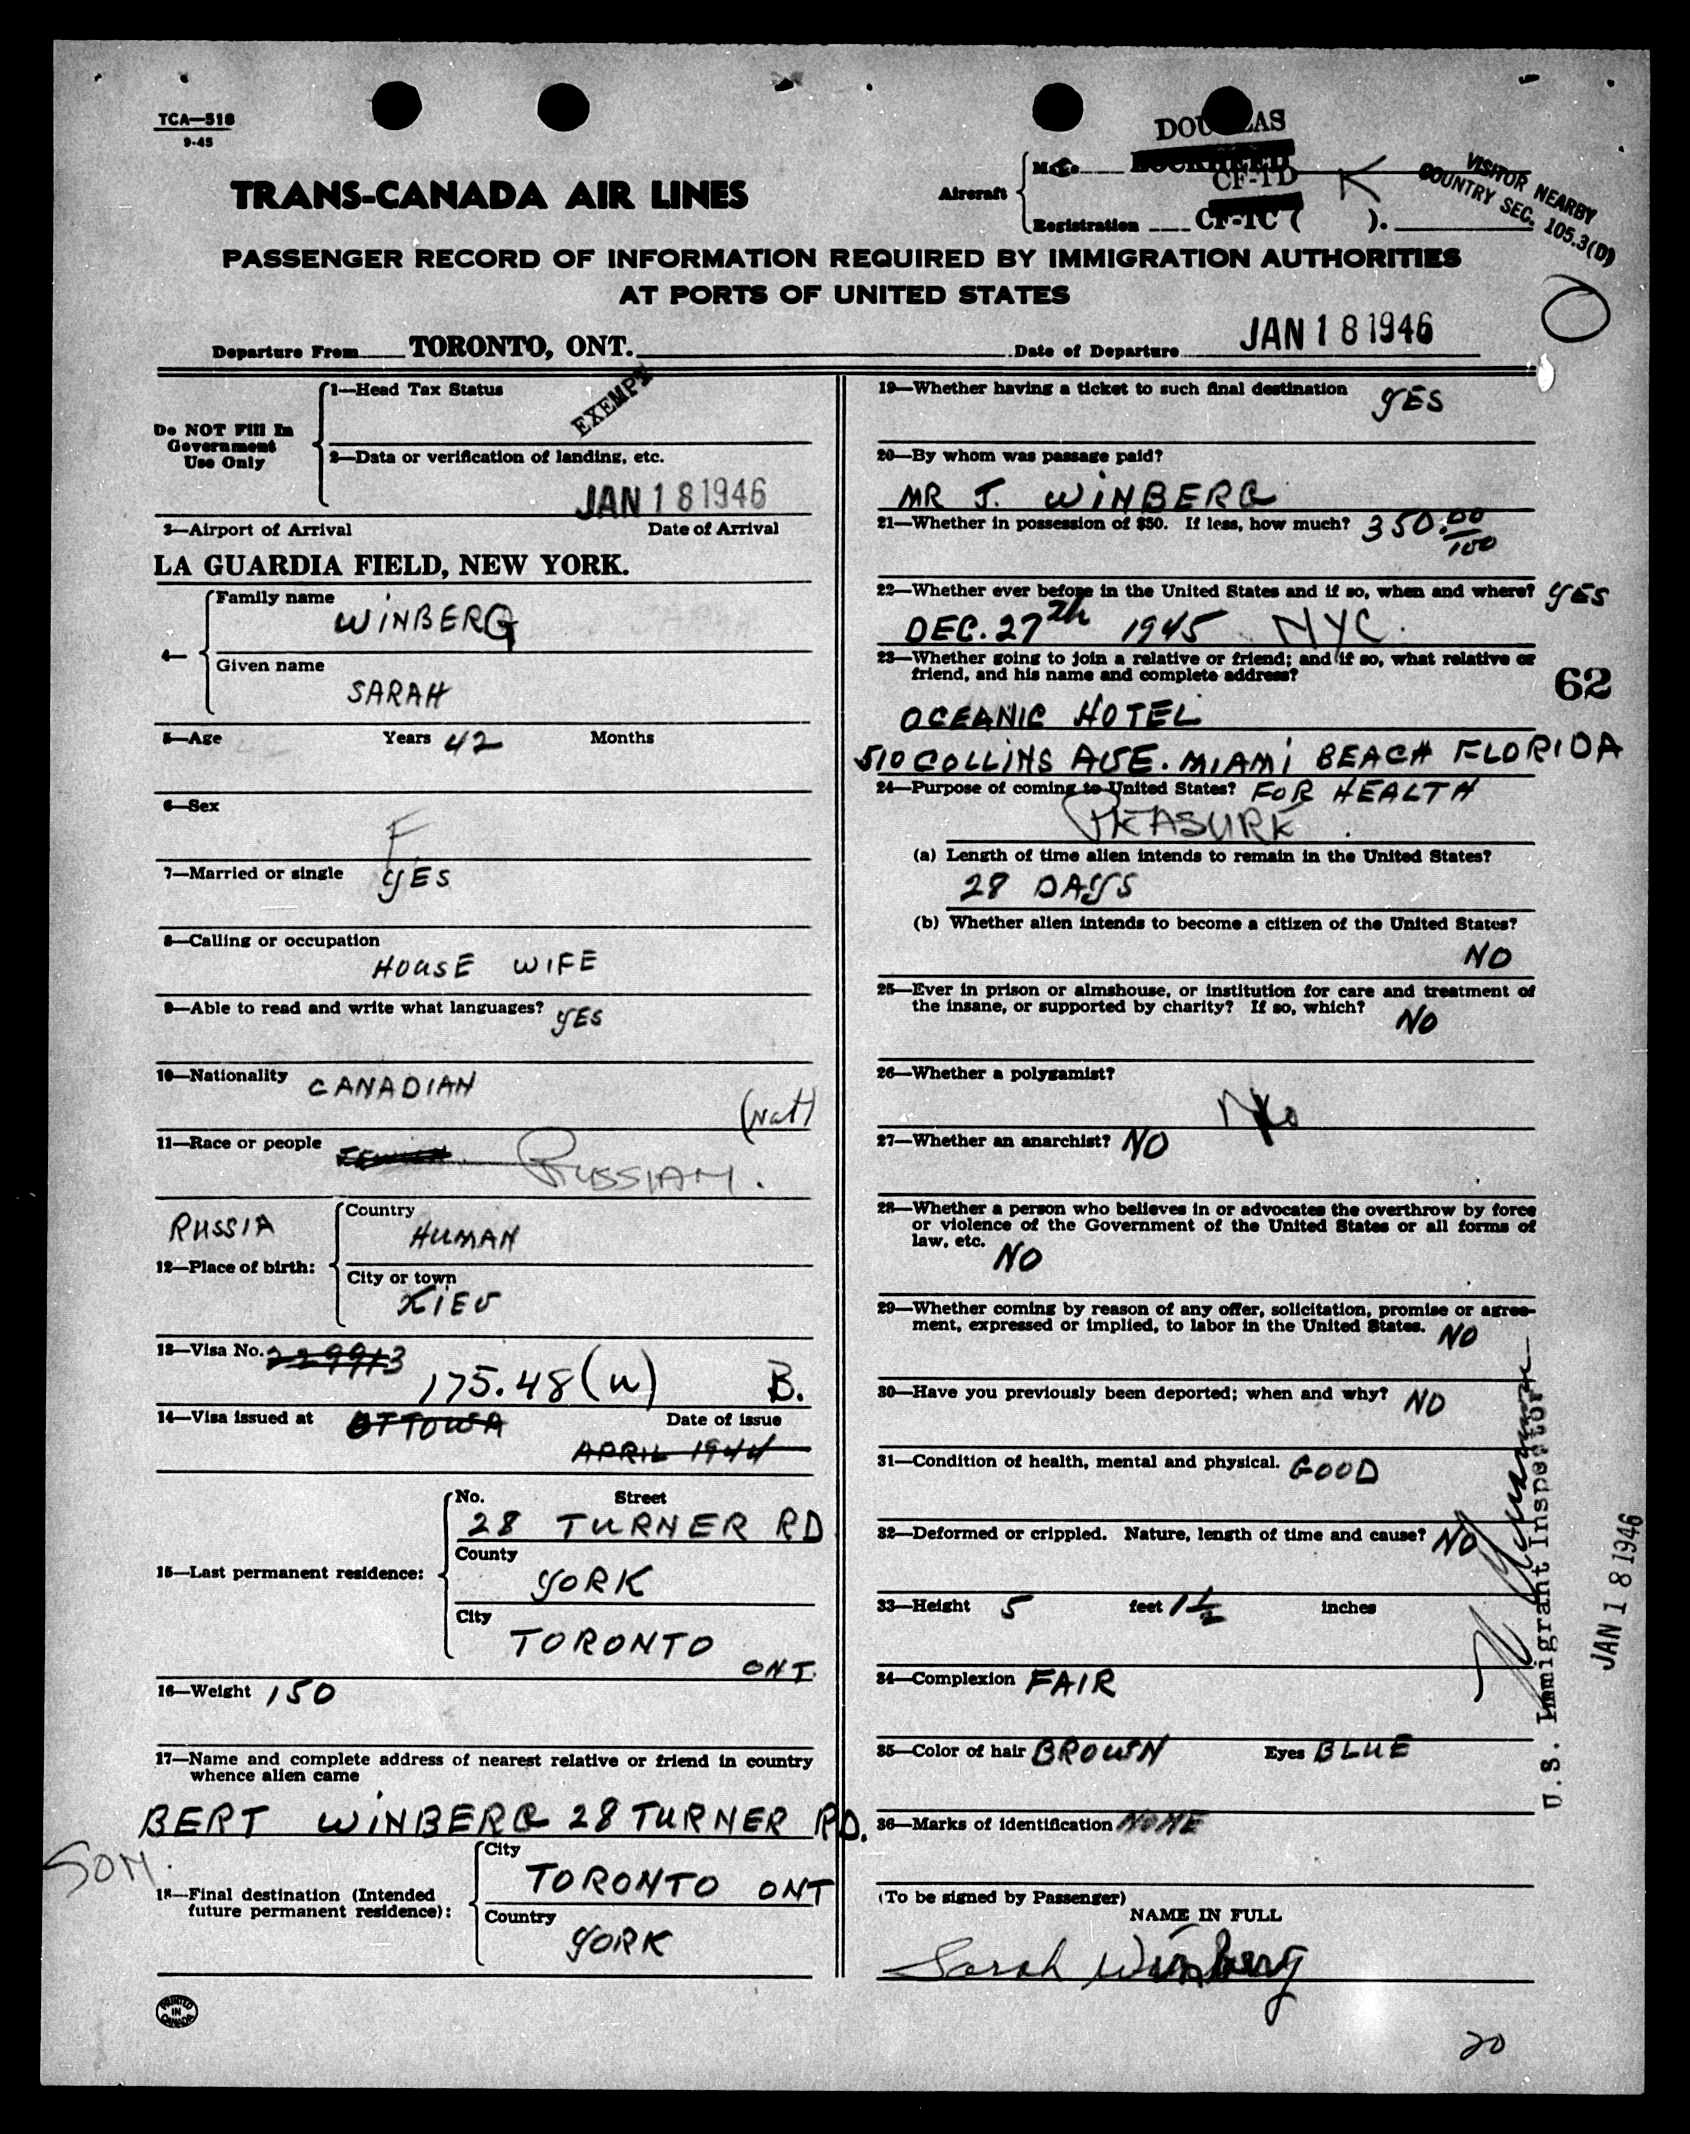 TCA—518
9-45
DOUGLAS
TRANS-CANADA AIR LINES
Aircraft
Make LOCKHEED
CF-TD K
Registration CF-TC ( ).
VISITOR NEARBY
COUNTRY SEC. 105.3(D)
PASSENGER RECORD OF INFORMATION REQUIRED BY IMMIGRATION AUTHORITIES
AT PORTS OF UNITED STATES
Departure From TORONTO, ONT. Date of Departure JAN 18 1946
Do NOT Fill In
Government
Use Only
1—Head Tax Status EXEMPT
2—Data or verification of landing, etc.
JAN 18 1946
3—Airport of Arrival Date of Arrival
LA GUARDIA FIELD, NEW YORK.
4—
Family name
WINBERG
Given name
SARAH
5—Age Years 42 Months
6—Sex
F
7—Married or single YES
8—Calling or occupation
HOUSE WIFE
9—Able to read and write what languages? YES
10—Nationality CANADIAN
(Nat)
11—Race or people RUSSIAN.
RUSSIA
12—Place of birth:
Country
HUMAN
City or town
KIEV
13—Visa No. 229913
175.48(W) B.
14—Visa issued at OTTOWA Date of issue
APRIL 1944
15—Last permanent residence:
No. Street
28 TURNER RD
County
YORK
City
TORONTO
ONT.
16—Weight 150
17—Name and complete address of nearest relative or friend in country
whence alien came
BERT WINBERG 28 TURNER RD.
SON.
18—Final destination (Intended
future permanent residence):
City
TORONTO ONT
Country
YORK
PRINTED
IN
CANADA
19—Whether having a ticket to such final destination YES
20—By whom was passage paid?
MR J. WINBERG
21—Whether in possession of $50. If less, how much? 350.00/100
22—Whether ever before in the United States and if so, when and where? YES
DEC. 27th 1945 NYC.
23—Whether going to join a relative or friend; and if so, what relative or
friend, and his name and complete address?
62
OCEANIC HOTEL
510 COLLINS AVE. MIAMI BEACH FLORIDA
24—Purpose of coming to United States? FOR HEALTH
PLEASURE.
(a) Length of time alien intends to remain in the United States?
28 DAYS
(b) Whether alien intends to become a citizen of the United States?
NO
25—Ever in prison or almshouse, or institution for care and treatment of
the insane, or supported by charity? If so, which? NO
26—Whether a polygamist?
No
27—Whether an anarchist? NO
28—Whether a person who believes in or advocates the overthrow by force
or violence of the Government of the United States or all forms of
law, etc.
NO
29—Whether coming by reason of any offer, solicitation, promise or agree-
ment, expressed or implied, to labor in the United States. NO
30—Have you previously been deported; when and why? NO
31—Condition of health, mental and physical. GOOD
32—Deformed or crippled. Nature, length of time and cause? NO
33—Height 5 feet 1 1/2 inches
34—Complexion FAIR
35—Color of hair BROWN Eyes BLUE
36—Marks of identification NONE
U.S. Immigrant Inspector
JAN 18 1946
(To be signed by Passenger)
NAME IN FULL
Sarah Winberg
20